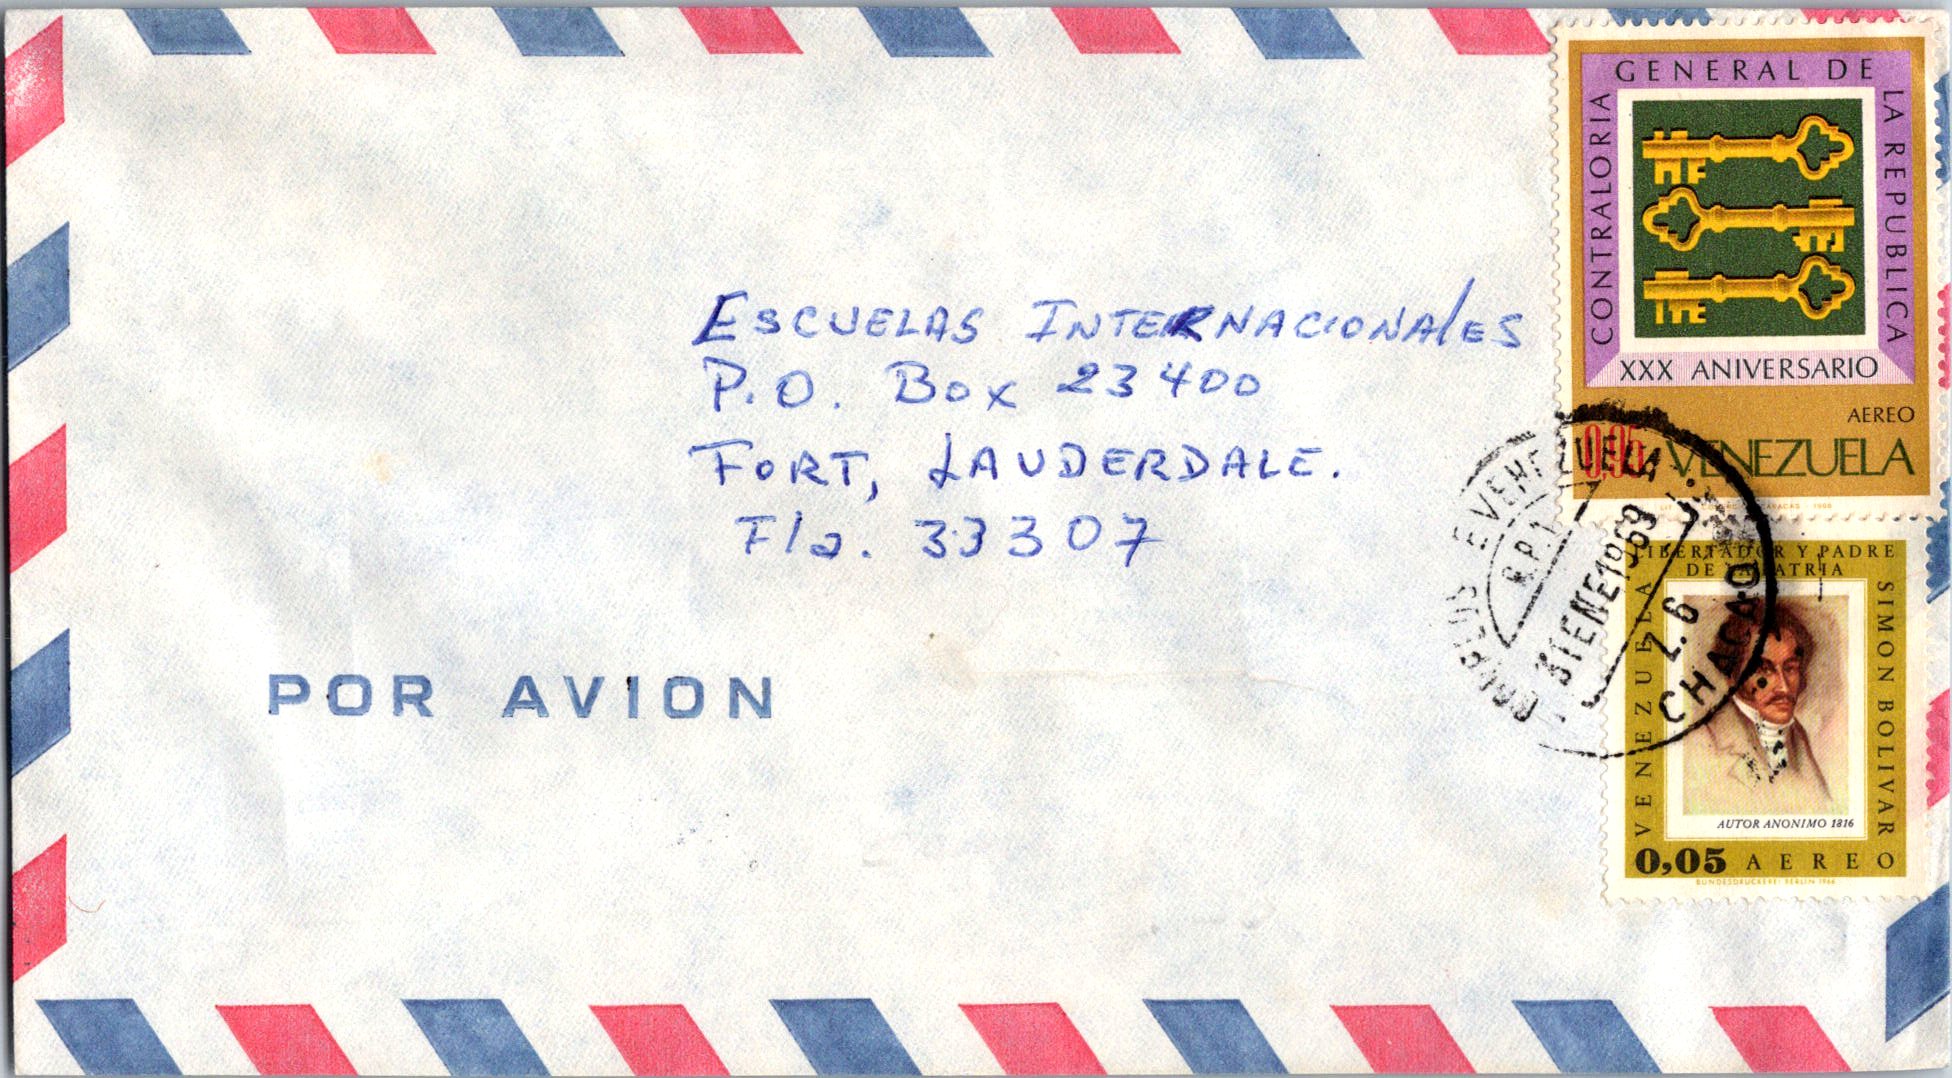 GENERAL DE
CONTRALORIA
LA REPUBLICA
XXX ANIVERSARIO
AEREO
0,05 VENEZUELA
ESCUELAS INTERNACIONAlES
P.O. Box 23400
FORT, LAUDERDALE.
Fla. 33307
POR AVION
VENEZUELA
31 ENE 1969
Z.6
CHACAO
LIBERTADOR Y PADRE
DE LA PATRIA
VENEZUELA
SIMON BOLIVAR
AUTOR ANONIMO 1816
0,05 AEREO
BUNDESDRUCKEREI BERLIN 1966